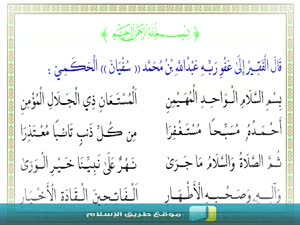 بسم الله الرحمن الرحيم
قَالَ الْفَقِيرُ إِلَى عَفْوِ رَبِّهِ عَبْدُاللهِ بْنُ مُحَمَّدْ (( سُفْيَانَ )) الْحَكَمِيّ :
بِسْمِ السَّلَامِ الْوَاحِدِ الْمُهَيْمِنِ الْمُسْتَعَانِ ذِي الْجَلَالِ الْمُؤْمِنِ
أَحْمَدُهُ مُسَبِّحًا مُسْتَغْفِرَا مِنْ كُلِّ ذَنْبٍ تَائِبًا مُعْتَذِرَا
ثُمَّ الصَّلَاةُ وَالسَّلَامُ مَا جَرَىٰ نَهْرٌ عَلَى نَبِيِّنَا خَيْرِ الْوَرَىٰ
وَآلِهِ وَصَحْبِهِ الْأَطْهَارِ الْفَاتِحِينَ الْقَادَةِ الْأَخْيَارِ
موقع طريق الإسلام